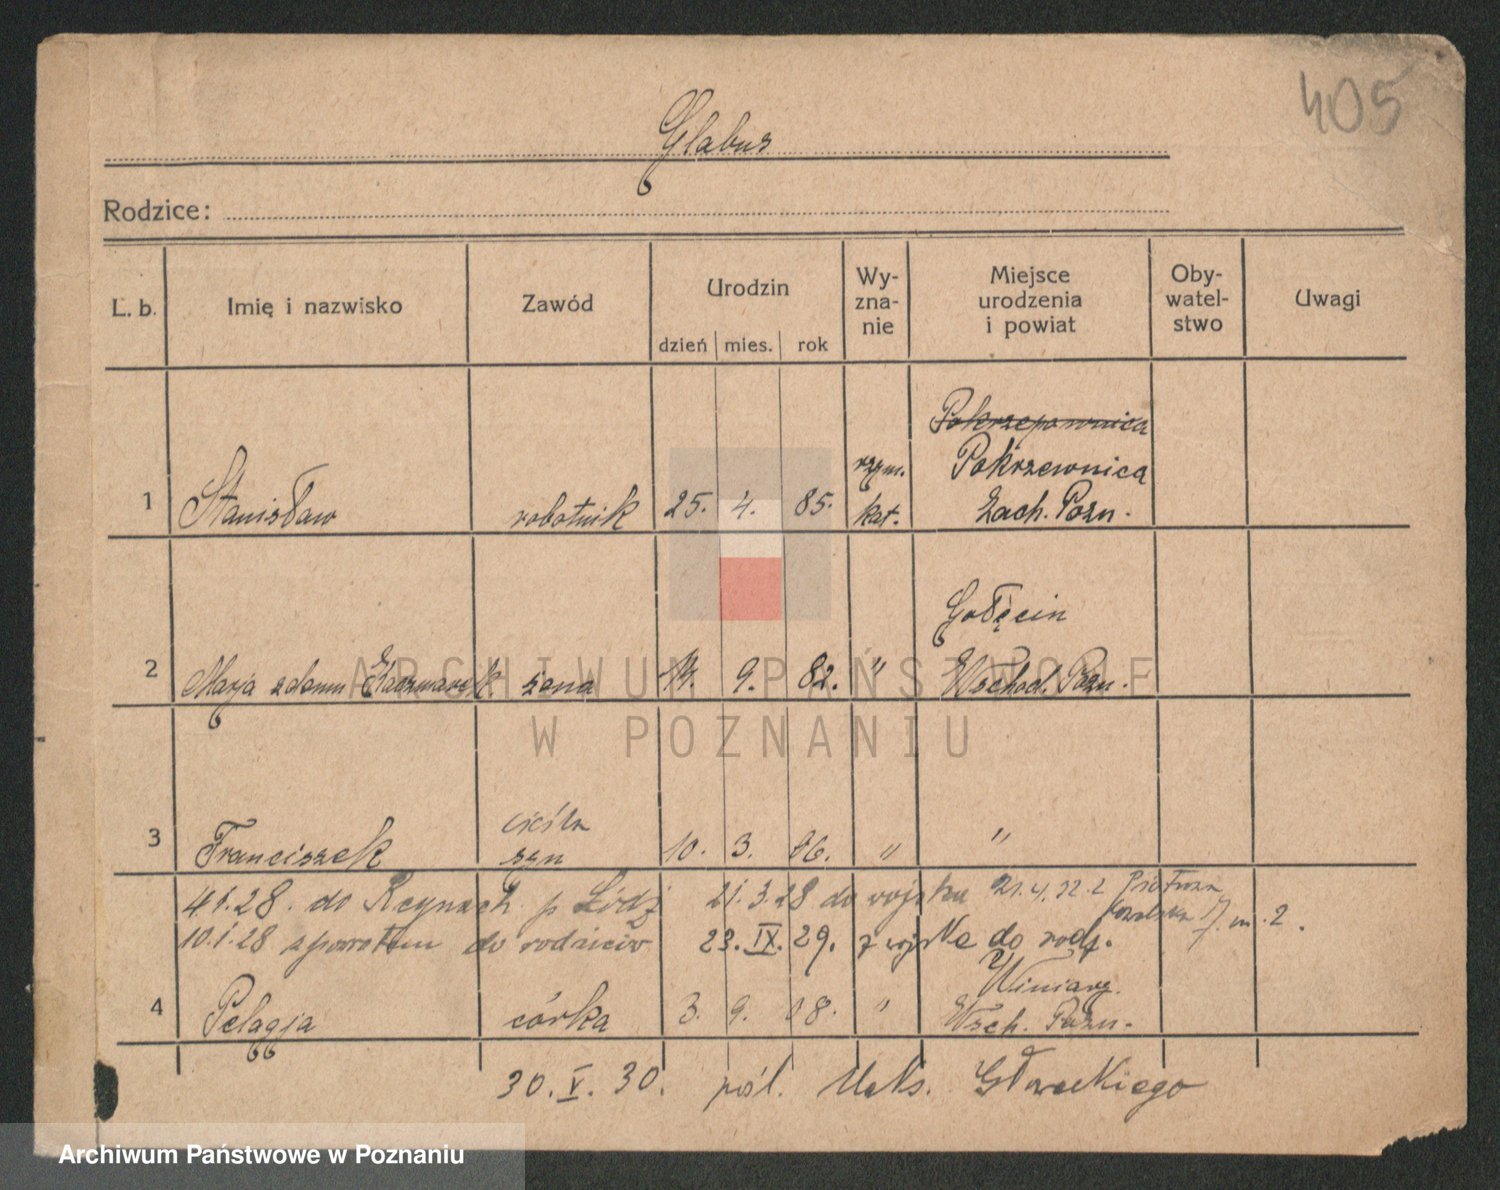 405
Glabus
Rodzice:
L. b. Imię i nazwisko Zawód Urodzin dzień mies. rok Wy-zna-nie Miejsce urodzenia i powiat Oby-watel-stwo Uwagi
Pokrzepownica
Pokrzewnica
1 Stanisław robotnik 25. 4. 85. rzym. kat. Zach. Pozn.
Gołęcin
2 Marja z domu Kaczmarek. żona 14. 9. 82. " Wschod. Pozn.
cieśla
3 Franciszek syn 10. 3. 06. " "
4.1.28. do p. Łódź 21.3.28 do wojska 21.4.32.
10.1.28 z powrotem do rodziców 23. IX. 29. z wojska do rodz. 17 m. 2.
Winiary.
4 Pelagja córka 3. 9. 08. " Wsch. Pozn.
30. V. 30. Maks.
ARCHIWUM PAŃSTWOWE
W POZNANIU
Archiwum Państwowe w Poznaniu